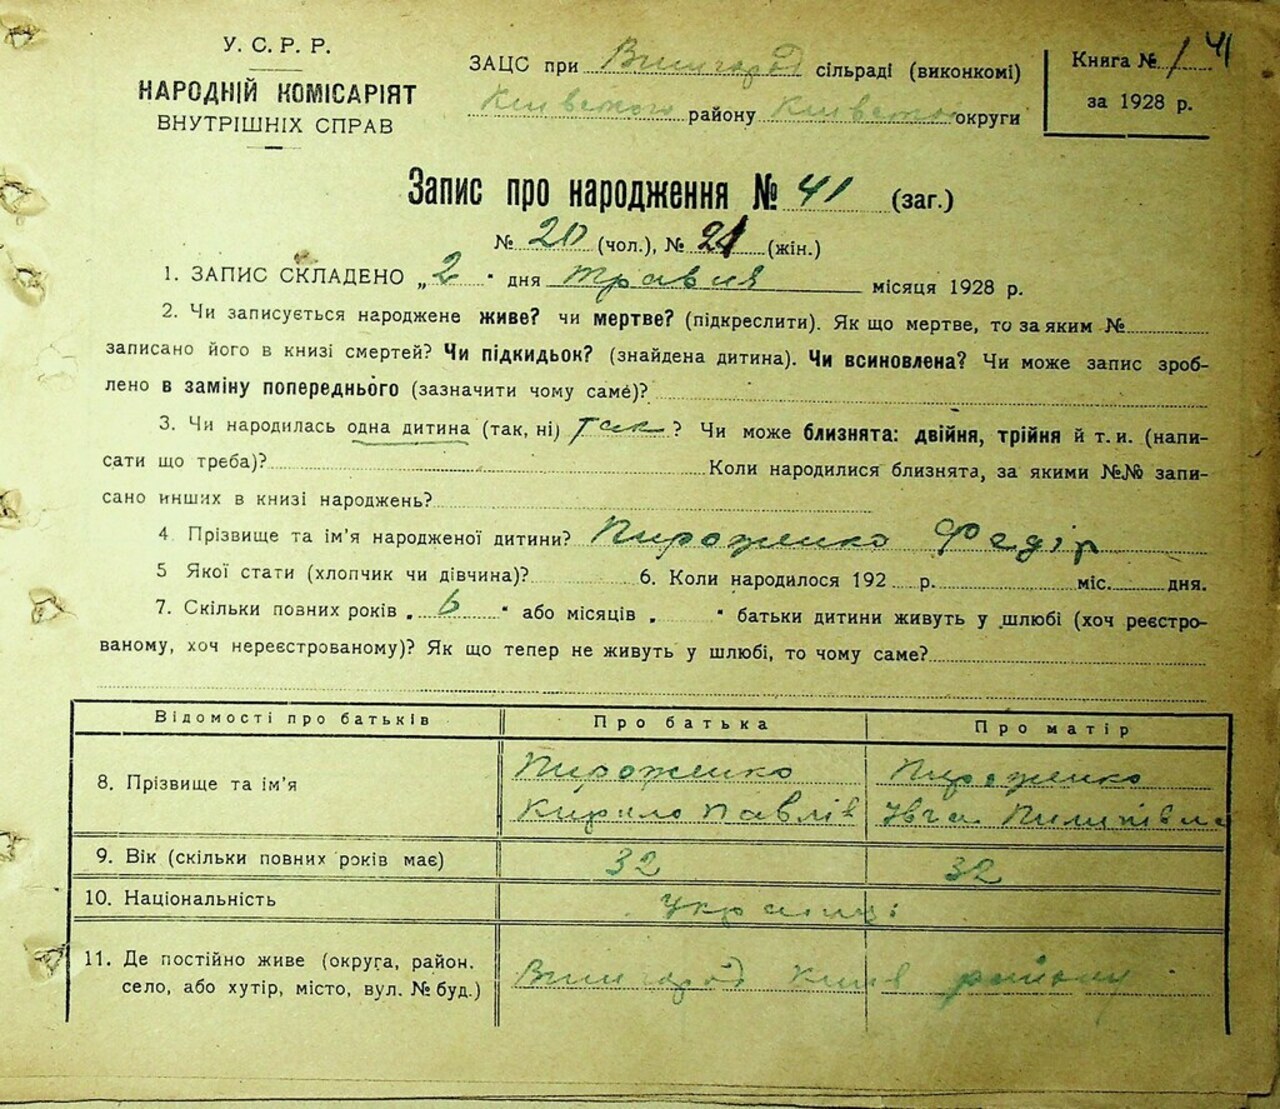 У. С. Р. Р.
НАРОДНІЙ КОМІСАРІЯТ
ВНУТРІШНІХ СПРАВ
ЗАЦС при Вишгород сільраді (виконкомі)
Київського району Київської округи
Книга № 1 41
за 1928 р.
Запис про народження № 41 (заг.)
№ 20 (чол.), № 21 (жін.)
1. ЗАПИС СКЛАДЕНО „2" дня травня місяця 1928 р.
2. Чи записується народжене живе? чи мертве? (підкреслити). Як що мертве, то за яким №
записано його в книзі смертей? Чи підкидьок? (знайдена дитина). Чи всиновлена? Чи може запис зроб-
лено в заміну попереднього (зазначити чому саме)?
3. Чи народилась одна дитина (так, ні) так? Чи може близнята: двійня, трійня й т. и. (напи-
сати що треба)? Коли народилися близнята, за якими №№ запи-
сано инших в книзі народжень?
4 Прізвище та ім'я народженої дитини? Пироженко Федір
5 Якої стати (хлопчик чи дівчина)? 6. Коли народилося 192 р. міс. дня.
7. Скільки повних років „6" або місяців „ " батьки дитини живуть у шлюбі (хоч реєстро-
ваному, хоч нереєстрованому)? Як що тепер не живуть у шлюбі, то чому саме?
Відомості про батьків Про батька Про матір
8. Прізвище та ім'я Пироженко Кирило Павлів Пироженко Івга Пилипівна
9. Вік (скільки повних років має) 32 32
10. Національність Українці
11. Де постійно живе (округа, район. Вишгород Київ району
село, або хутір, місто, вул. № буд.)